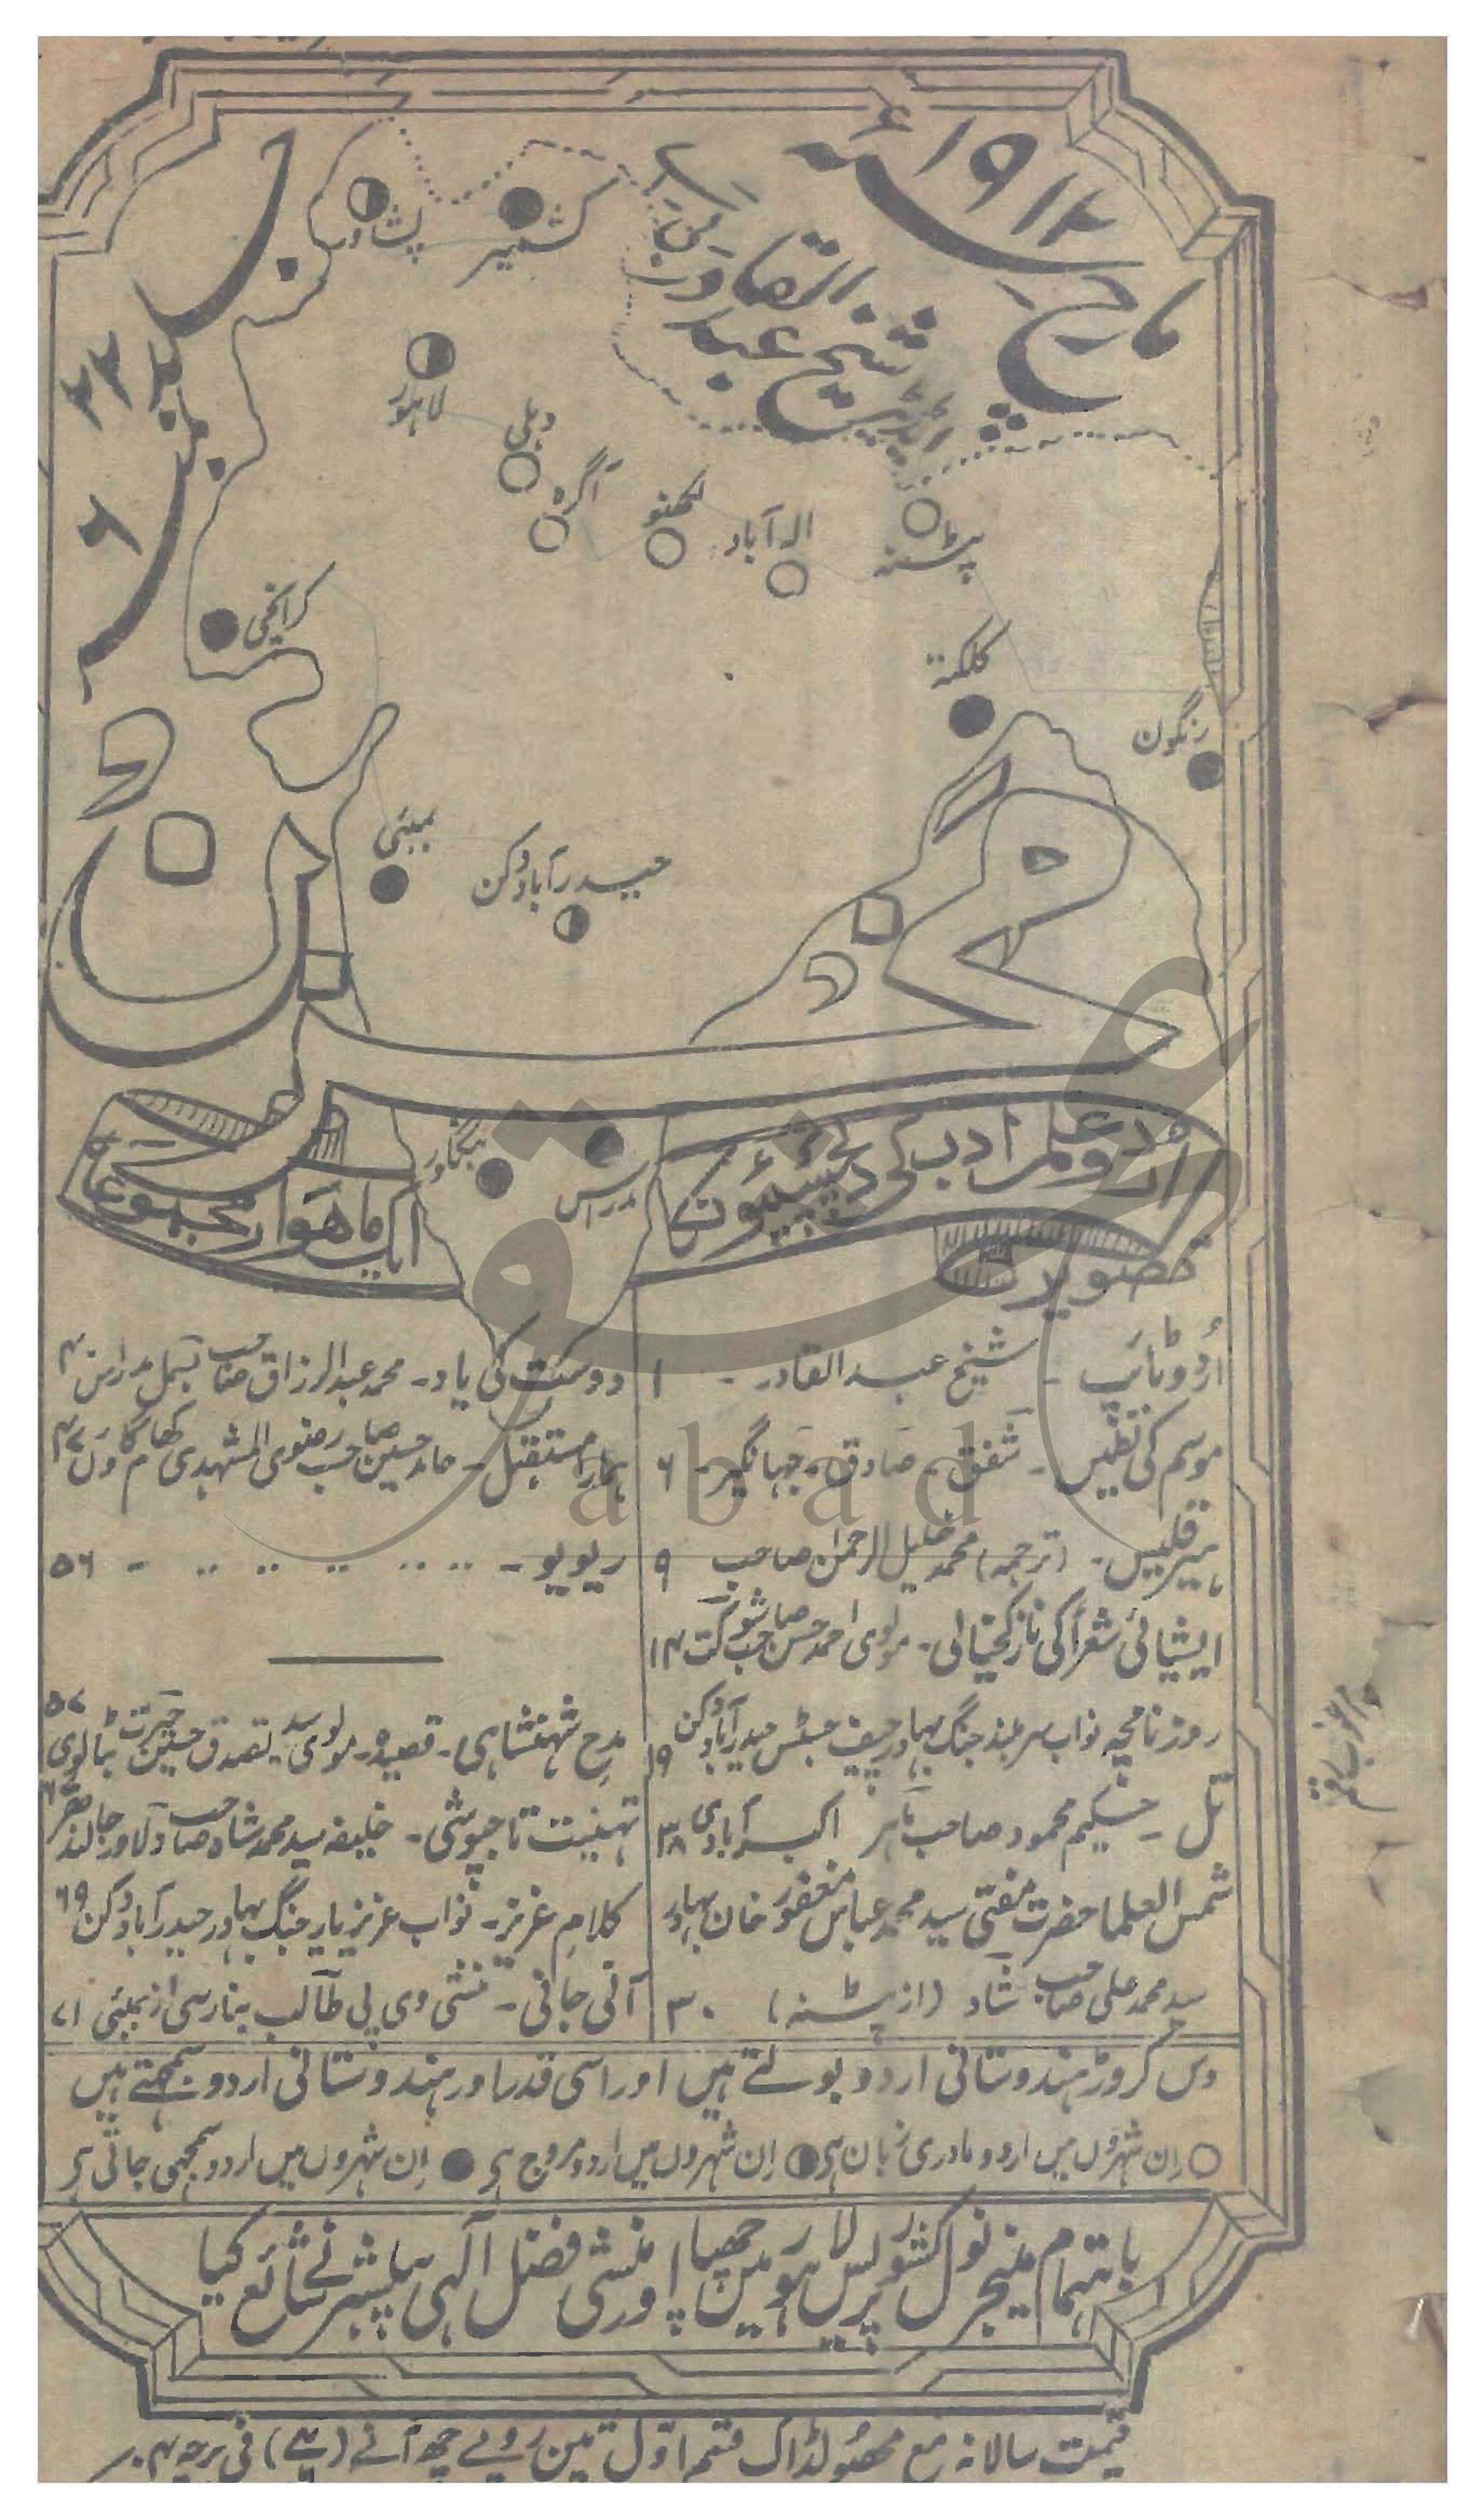 مارچ
۱۹۱۲ء
ایڈیٹر
شیخ عبد القادر
جلد ۲۲
نمبر ۶
مخزن
پشاور
کشمیر
لاہور
دہلی
آگرہ
لکھنؤ
الہ آباد
پٹنہ
کرانچی
کلکتہ
رنگون
بمبئی
حیدرآباد دکن
بنگلور
مدراس
اردو علم ادب کی دلچسپیوں کا
ایک ماہوار مجموعہ
تصویر
اُردو ٹائپ - شیخ عبد القادر - ۱
موسم کی نظمیں - شفق - صادق - جہانگیر - ۶
ہیرقلیس - (ترجمہ) محمد خلیل الرحمٰن صاحب ۹
ایشیائی شعرا کی نازک خیالی - مولوی احمد حسن صاحب شوکت ۱۴
روزنامچہ نواب سر بلند جنگ بہادر چیف جسٹس حیدرآباد دکن ۱۹
تل - حکیم محمود صاحب ماہر اکبرآبادی ۳۸
شمس العلما حضرت مفتی سید محمد عباس مغفور خان بہادر
سید محمد علی صاحب شاد (از پٹنہ) ۳۰
دوست کی یاد - محمد عبدالرزاق صاحب بسمل مدراس
ہمارا مستقبل - حامد حسین صاحب رضوی المشہدی کھام گاوں
ریویو - ۵۶
مدح شہنشاہی - قصیدہ - مولوی سید تصدق حسین حیرت بٹالوی ۵۷
تہنیت تاجپوشی - خلیفہ سید محمد شاہ صاحب دلاور جالندھر
کلام عزیز - نواب عزیز یار جنگ بہادر حیدرآباد دکن ۶۹
آنی جانی - منشی وی پی طالب بنارسی از بمبئی ۷۱
دس کروڑ ہندوستانی اردو بولتے ہیں اور اسی قدر اور ہندوستانی اردو سمجھتے ہیں
○ اِن شہروں میں اردو مادری زبان ہی ◑ اِن شہروں میں اردو مروج ہی ● اِن شہروں میں اردو سمجھی جاتی ہی
باہتمام منیجر نولکشور پریس لاہور میں چھپا اور منشی فضل الٰہی پبلشر نے شائع کیا
قیمت سالانہ مع محصولڈاک قسم اوّل تین روپے چھ آنے فی پرچہ ۶؍
abad